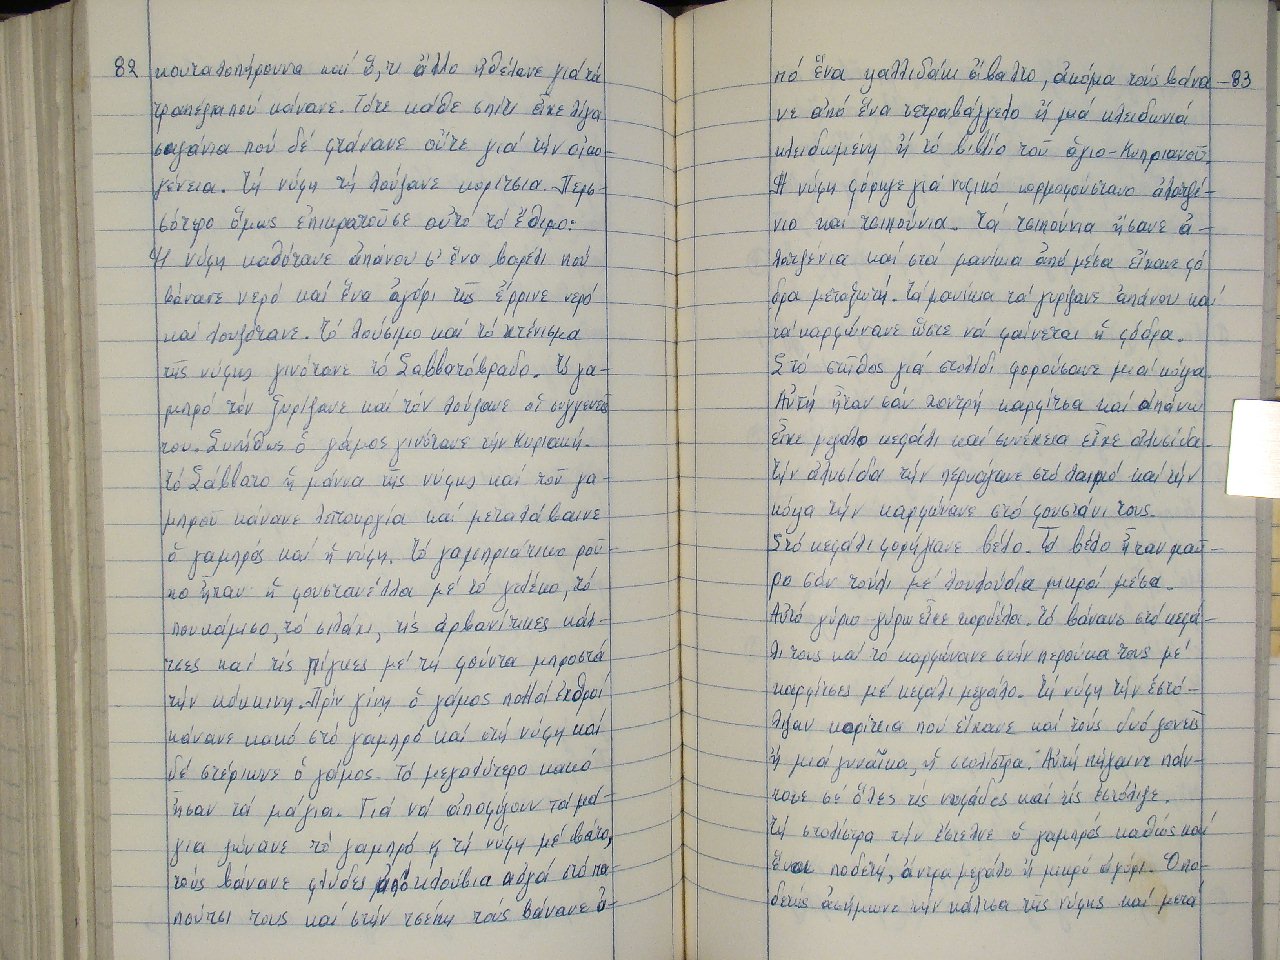 82
κουταλοπήρουνα καί ὅ,τι ἄλλο ἠθέλανε γιά τά
τραπέζια πού κάνανε. Τότε κάθε σπίτι εἶχε λίγα
σαγάνια πού δέ φτάνανε οὔτε γιά τήν οἰκο-
γένεια. Τή νύφη τή λούζανε κορίτσια. Περισ-
σότερο ὅμως ἐπικρατοῦσε αὐτό τό ἔθιμο:
Ἡ νύφη καθότανε ἀπάνου σ' ἕνα βαρέλι πού
βάνανε νερό καί ἕνα ἀγόρι τῆς ἔρρινε νερό
καί λουζότανε. Τό λούσιμο καί τό κτένισμα
τῆς νύφης γινότανε τό Σαββατόβραδο. Τό γα-
μπρό τόν ξυρίζανε καί τόν λούζανε οἱ συγγενεῖς
του. Συνήθως ὁ γάμος γινότανε τήν Κυριακή.
Τό Σάββατο ἡ μάννα τῆς νύφης καί τοῦ γα-
μπροῦ κάνανε λειτουργία καί μεταλάβαινε
ὁ γαμπρός καί ἡ νύφη. Τό γαμπριάτικο ροῦ-
χο ἦταν ἡ φουστανέλλα μέ τό γιλέκο, τό
πουκάμισο, τό σελάχι, τις ἀρβανίτικες κάλ-
τσες καί τίς πίγκες μέ τή φούντα μπροστά
τήν κόκκινη. Πρίν γίνη ὁ γάμος πολλοί ἐχθροί
κάνανε κακό στό γαμπρό καί στή νύφη καί
δέ στέριωνε ὁ γάμος. Τό μεγαλύτερο κακό
ἦσαν τά μάγια. Γιά νά ἀποφύγουν τά μά-
για ζώνανε τό γαμπρό ἤ τή νύφη μέ βάτο,
τούς βάνανε φλύδες ἀπό κλούβια αὐγά στό πα-
πούτσι τους καί στήν τσέπη τούς βάνανε ἀ-
83
πό ἕνα ψαλλιδάκι ἀκόμα τούς βάνα-
νε ἀπό ἕνα τετραβάγγελο ἤ μιά κλειδωνιά
κλειδωμένη ἤ τό βιβλίο τοῦ ἁγιο-Κυπριανοῦ.
Ἡ νύφη φόραγε γιά νυφικό κορμοφούστανο ἀλατζέ-
νιο καί τσιπούνια. Τά τσιπούνια ἤσανε ἀ-
λατζένια καί στά μανίκια ἀπό μέσα εἴχανε φό-
δρα μεταξωτή. Τά μανίκια τά γυρίζανε ἀπάνου καί
τά καρφώνανε ὥστε νά φαίνεται ἡ φόδρα.
Στό στῆθος γιά στολίδι φορούσανε μιά κόψα.
Αὐτή ἦταν σάν χοντρή καρφίτσα καί ἀπάνω
εἶχε μεγάλο κεφάλι καί συνέχεια εἶχε ἀλυσίδα.
Τήν ἀλυσίδα τήν περνάγανε στό λαιμό καί τήν
κόψα τήν καρφώνανε στό φουστάνι τους.
Στό κεφάλι φορήγανε βέλο. Τό βέλο ἦταν μαῦ-
ρο σάν τούλι μέ λουλούδια μικρά μέσα.
Αὐτό γύρω γύρω εἶχε κορδέλα. Τό βάνανε στό κεφά-
λι τους καί τό καρφώνανε στήν περούκα τους μέ
καρφίτσες μέ κεφάλι μεγάλο. Τή νύφη τήν ἐστό-
λιζαν κορίτσια πού εἴχανε καί τούς δυό γονεῖς
ἤ μιά γυναῖκα, ἡ στολίστρα. Αὐτή πήγαινε πάν-
τοτε σέ ὅλες τίς νυφάδες καί τίς ἐστόλιζε.
Τή στολίστρα τήν ἔστελνε ὁ γαμπρός καθώς καί
ἕναν ποδετή, ἄντρα μεγάλο ἤ μικρό ἀγόρι. Ὁ πο-
δετής ἀσήμωνε τήν κάλτσα τῆς νύφης καί μετά